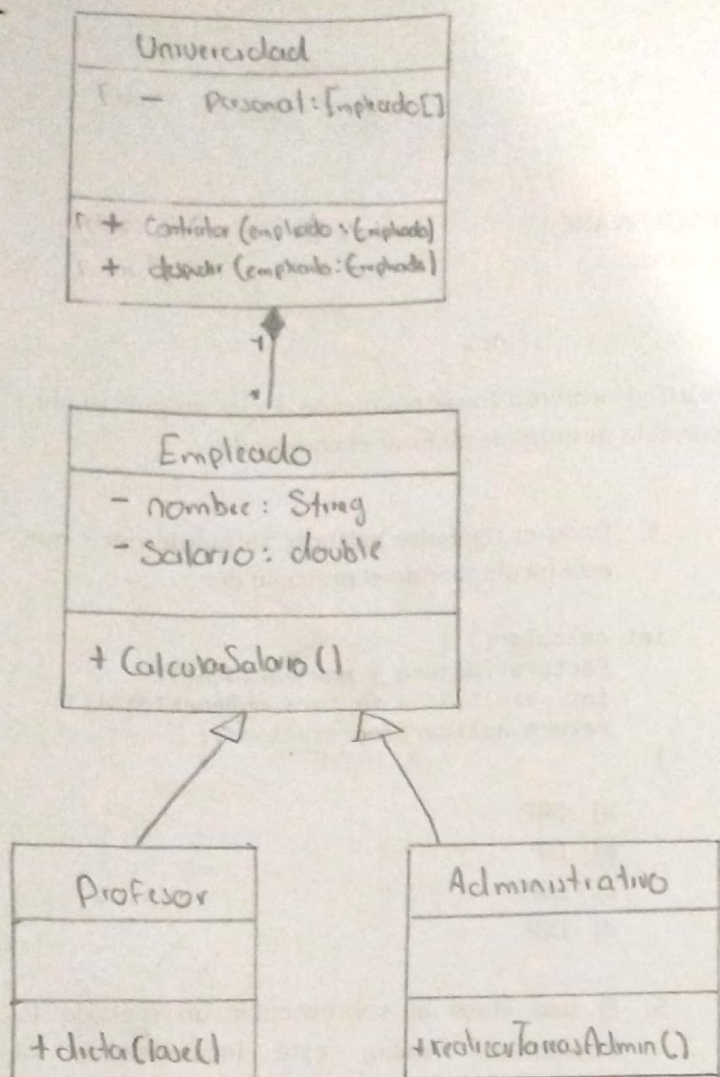 Universidad
- Personal: Empleado[]
+ Contratar (empleado: Empleado)
+ despedir (empleado: Empleado)
1
*
Empleado
- nombre: String
- Salario: double
+ CalcularSalario()
Profesor
+ dictaClase()
Administrativo
+ realizarTareasAdmin()